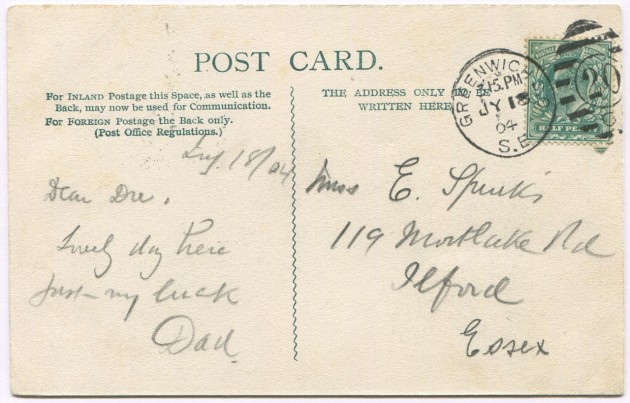 POST CARD.
For INLAND Postage this Space, as well as the
Back, may now be used for Communication.
For FOREIGN Postage the Back only.
(Post Office Regulations.)
THE ADDRESS ONLY TO BE
WRITTEN HERE
GREENWICH
15.PM
JY 18
04
S.E
HALF PE
18/04
Dear Dre,
Lovely day here
just my luck
Dad
Miss E. Spinks
119 Mortlake Rd
Ilford
Essex